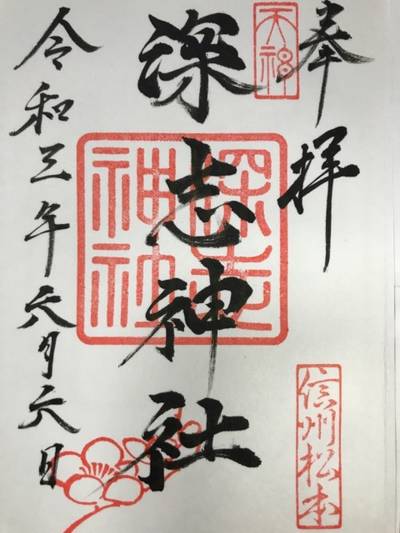 奉拝
天神
深志神社
深志神社
信州松本
令和三年六月六日